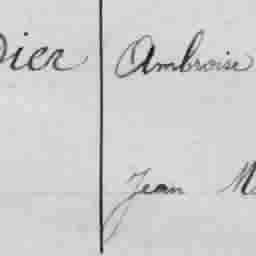 Dier Ambroise
Jean M